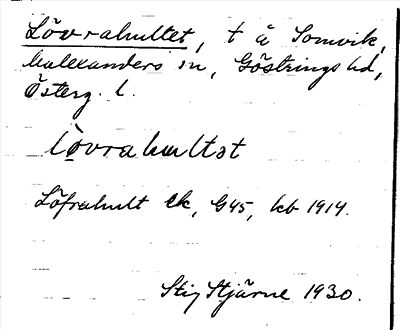 Lövrahultet, t å Somvik,
Malexanders sn, Göstrings hd,
Österg. l.
lövrahultət
Löfrahult ek, G45, kb 1914.
Stig Stjärne 1930.